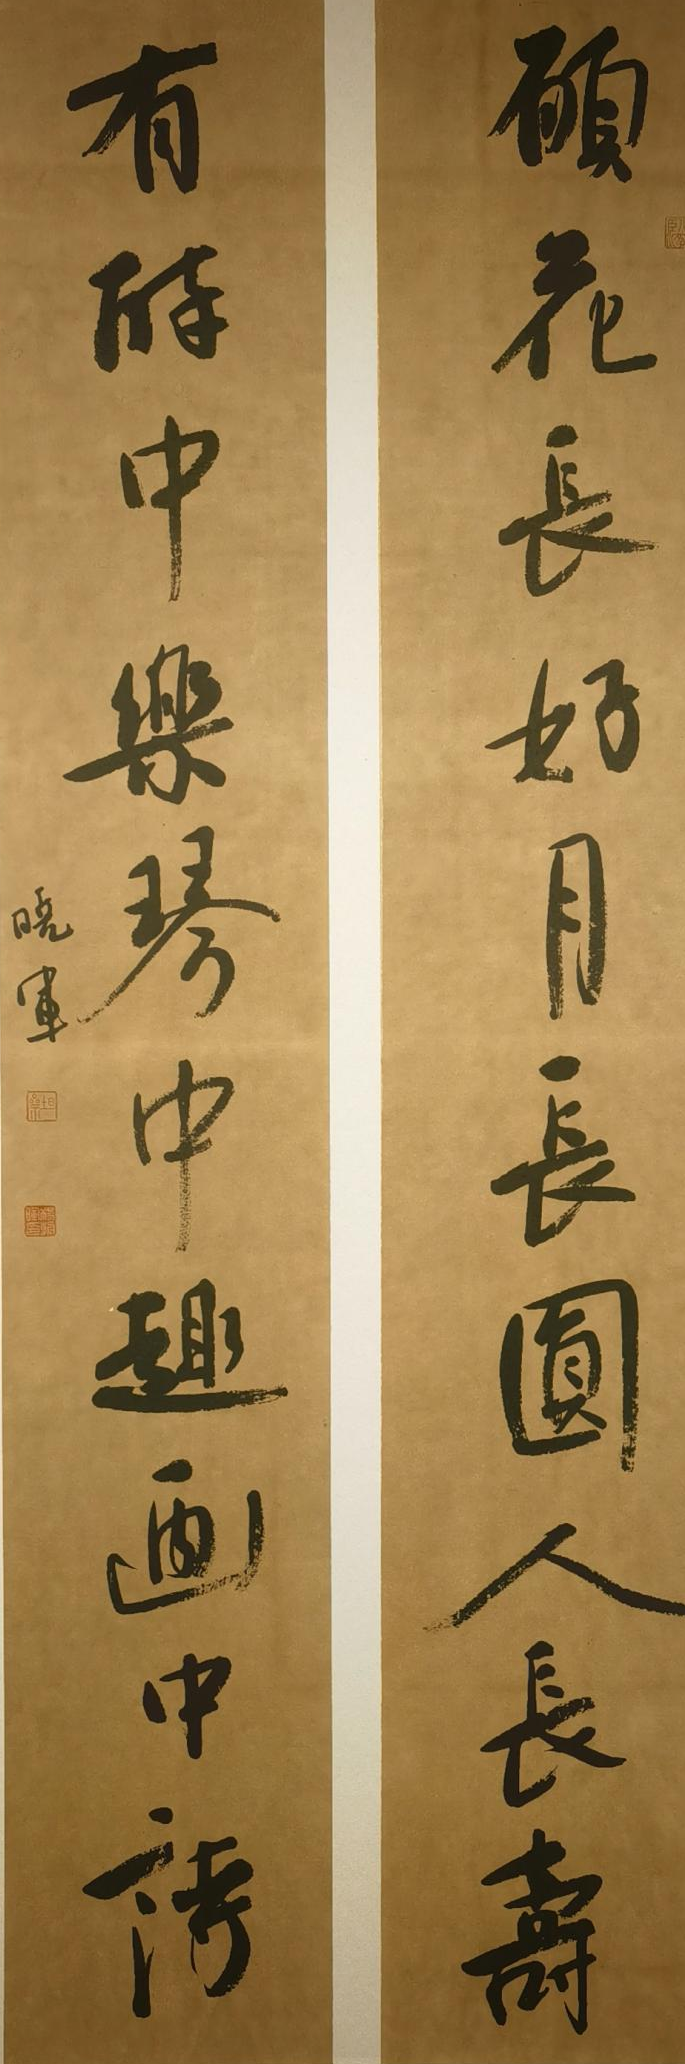 願花長好月長圓人長壽
有酔中樂琴中趣画中詩
曉軍